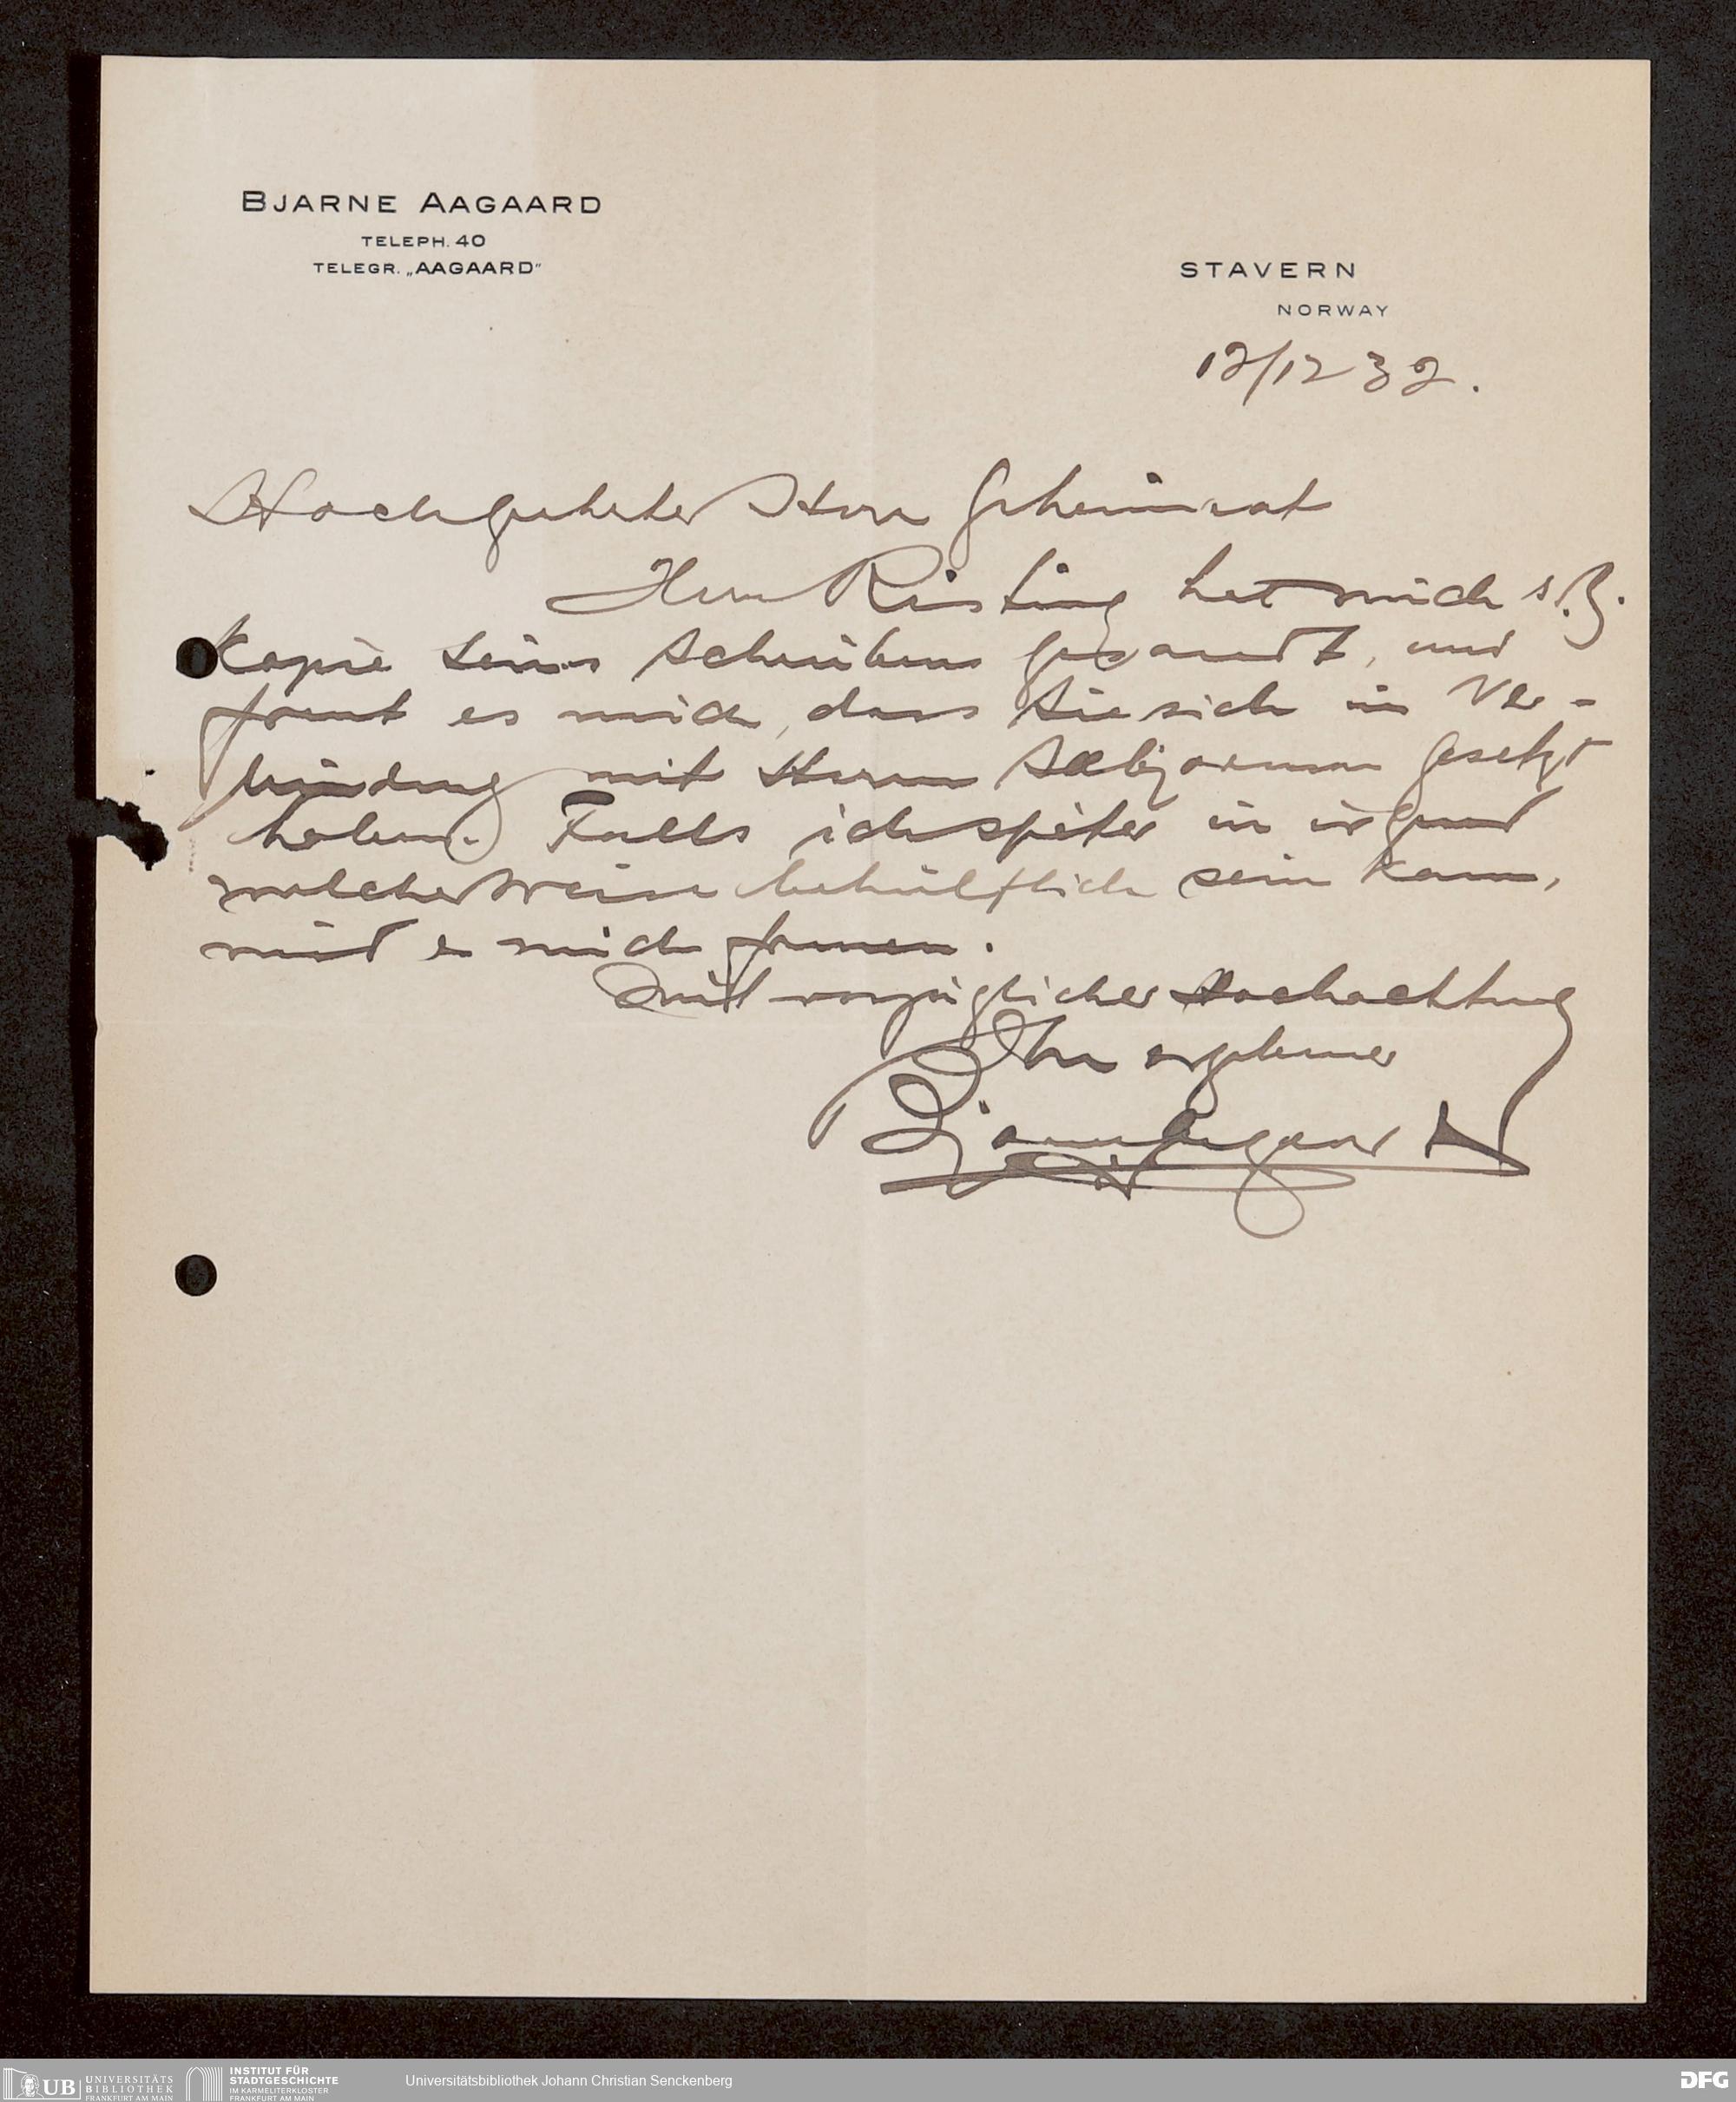 BJARNE AAGAARD
TELEPH. 40
TELEGR. „AAGAARD"
STAVERN
NORWAY
12/12 32.
Hochgeehrter Herr Geheimrat
Herr Risting hat mich s. Z.
Kopie seines Schreibens gesandt, und
freut es mich, dass Sie sich in Ver-
bindung mit Herrn Aabjørnsen gesetzt
haben. Falls ich später in irgend
welcher Weise behülflich sein kann,
wird es mich freuen.
Mit vorzüglicher Hochachtung
Ihr ergebener
Bjarne Aagaard
UB
UNIVERSITÄTS
BIBLIOTHEK
FRANKFURT AM MAIN
INSTITUT FÜR
STADTGESCHICHTE
IM KARMELITERKLOSTER
FRANKFURT AM MAIN
Universitätsbibliothek Johann Christian Senckenberg
DFG